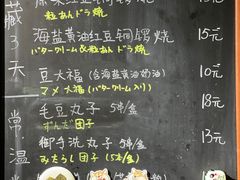 藏3天
常温
原味红豆铜锣烧 15元
粒あんドラ焼
海盐黄油红豆铜锣烧 15元
バタークリーム&粒あんドラ焼
豆大福(含海盐黄油奶油) 10元
マメ大福(バタークリーム入り)
毛豆丸子 5串/盒 18元
ずんだ団子
御手洗丸子 5串/盒 13元
みたらし団子(5本/盒)